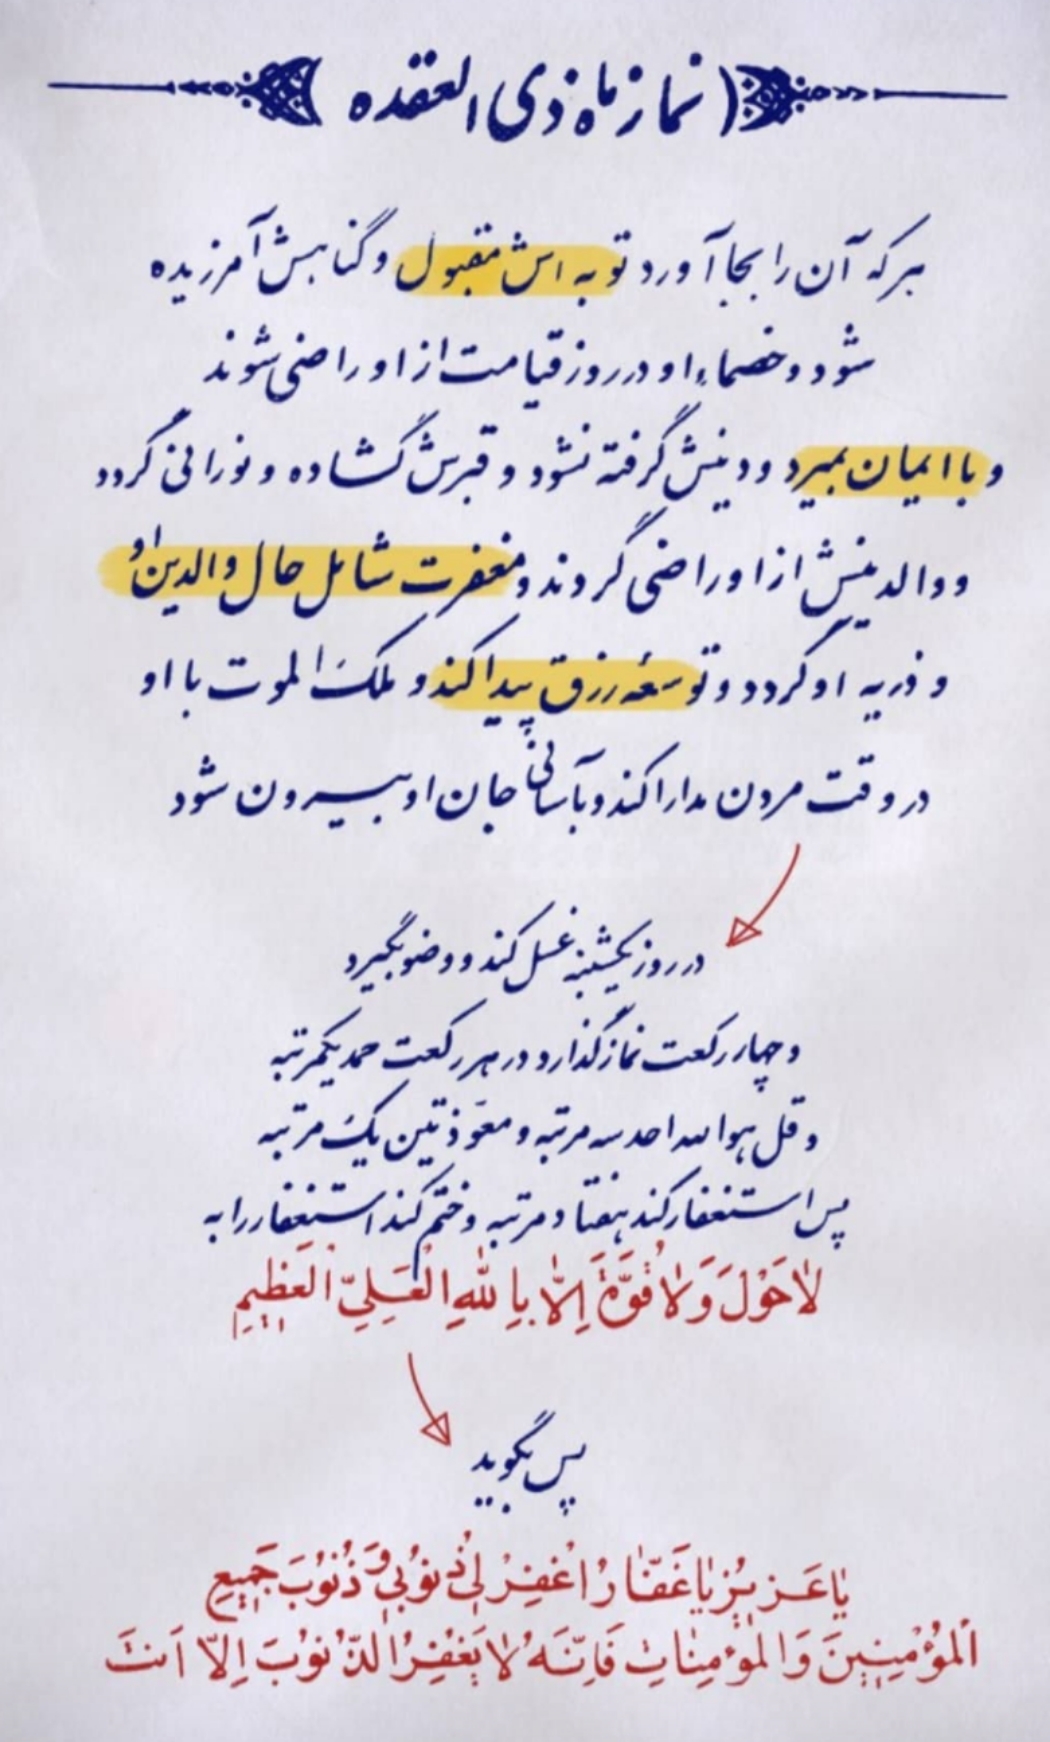 نماز ماه ذی العقده
هر که آن را بجا آورد توبه اش مقبول و گناهش آمرزیده
شود و خصماء او در روز قیامت از او راضی شوند
و با ایمان بمیرد و دینش گرفته نشود و قبرش گشاده و نورانی گردد
و والدینش از او راضی گردند و مغفرت شامل حال والدین او
و ذریه او گردد و توسعهٔ رزق پیدا کند و ملک الموت با او
در وقت مردن مدارا کند و بآسانی جان او بیرون شود
در روز یکشنبه غسل کند و وضو بگیرد
و چهار رکعت نماز گذارد در هر رکعت حمد یکمرتبه
و قل هو الله احد سه مرتبه و معوّذتین یک مرتبه
پس استغفار کند هفتاد مرتبه و ختم کند استغفار را به
لاٰحَوْلَ وَ لاٰ قُوَّةَ اِلاّٰ بِاللّٰهِ الْعَلِيِّ الْعَظِيمِ
پس بگوید
يٰا عَزيزُ يٰا غَفّٰارُ اغْفِرْ لي ذُنُوبي وَ ذُنُوبَ جَميعِ
اَلْمُؤْمِنينَ وَ الْمُؤمِنٰاتِ فَاِنَّهُ لاٰ يَغْفِرُ الذُّنُوبَ اِلاّ اَنتَ